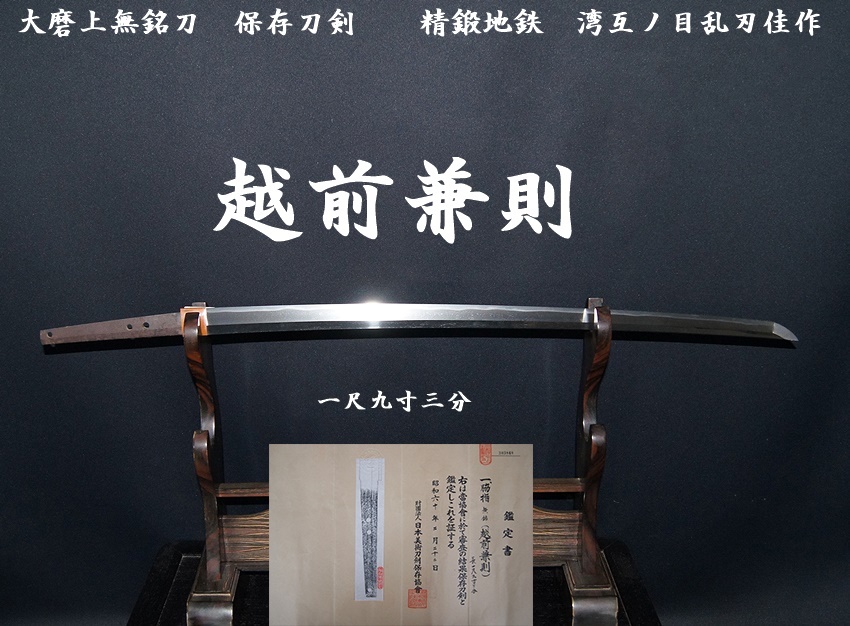 大磨上無銘刀　保存刀剣　　精鍛地鉄　湾互ノ目乱刃佳作
越前兼則
一尺九寸三分
鑑定書
一、脇指 無銘（越前兼則）
長一尺九寸三分
右は當協會に於て審査の結果保存刀剣と
鑑定しこれを証する
昭和六十年
月二十
日
財団法人日本美術刀剣保存協會